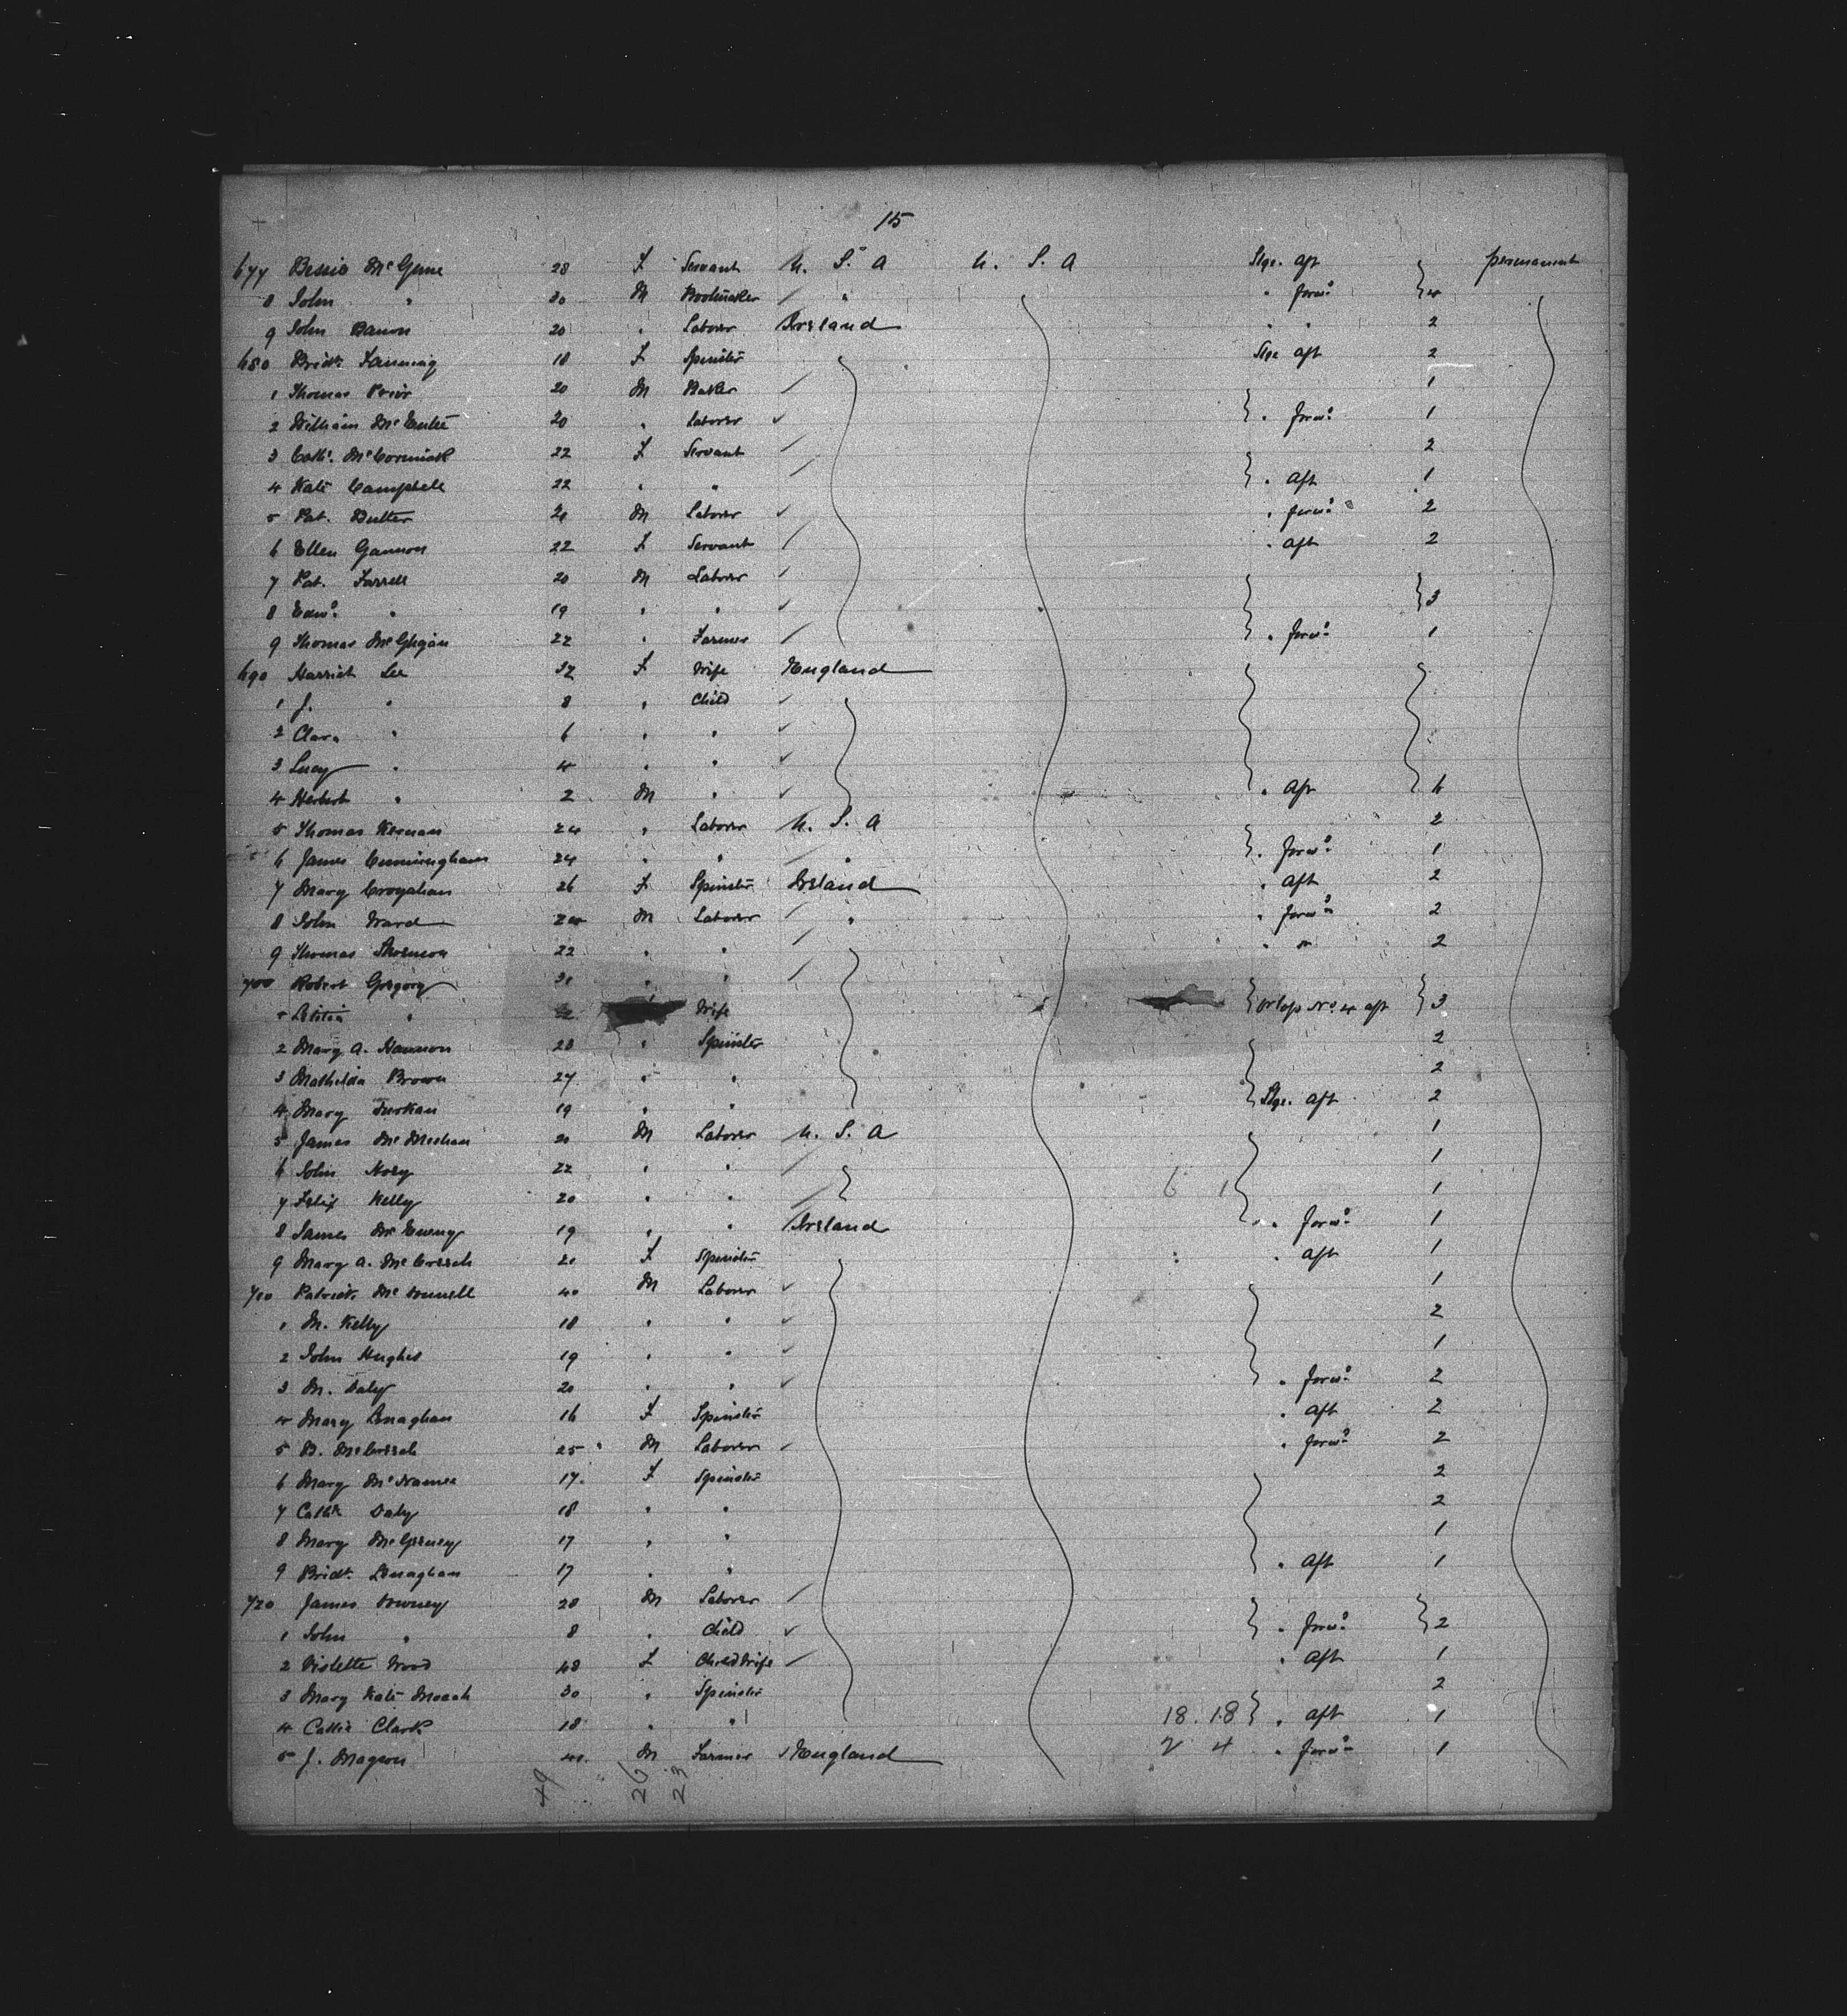 15
677 Bessie McGune 28 F Servant U. S. A U. S. A Stge. aft permanent
8 John " 30 M Bootmaker / " " forwd 4
9 John Banon 20 " Laborer Ireland " " 2
680 Bridt. Fanning 18 F Spinster Stge aft 2
1 Thomas Prior 20 M Baker / 1
2 William McEntee 20 " Laborer " forwd 1
3 Cath. McCormick 22 F Servant / 2
4 Kate Campbell 22 " " / " Aft 1
5 Pat. Butter 21 M Laborer " forwd 2
6 Ellen Gannon 22 F Servant / " Aft 2
7 Pat. Farrell 20 M Laborer
8 Edwd. " 19 " " 3
9 Thomas McGhgan 22 " Farmer / " forwd 1
690 Harriet Lee 32 F Wife England
1 J. " 8 " Child
2 Clara " 6 " "
3 Lucy " 4 " "
4 Herbert " 2 M " " Aft 6
5 Thomas Kernan 24 " Laborer U. S. A 2
6 James Cunningham 24 " " " " forwd 1
7 Mary Croghan 26 F Spinster Ireland " aft 2
8 John Ward 24 M Laborer / " " forwd 2
9 Thomas 22 " " / " " 2
700 Robert Gregory 31 " " /
Letitia " Wife Orlop No 4 aft 3
2 Mary A. Hannon 23 " Spinster 2
3 Mathilda Brown 27 " " 2
4 Mary Durkan 19 " " Stge. aft 2
5 James McMeehan 20 M Laborer U. S. A 1
6 John 22 " " / 1
7 Felix Kelly 20 " " / 6 1 1
8 James McEveny 19 " " Ireland " forwd 1
9 Mary A. McCreesh 21 F Spinster " aft 1
710 Patrick McDonnell 40 M Laborer 1
1 M. Kelly 18 " " 2
2 John Hughes 19 " " 1
3 M. Daly 20 " " " forwd 2
4 Mary Lenaghan 16 F Spinster " aft 2
5 B. McCreesh 25 M Laborer " forwd 2
6 Mary McNamee 17 F Spinster 2
7 Cathe Daly 18 " " 2
8 Mary McGreney 17 " " 1
9 Bridt. Lenaghan 17 " " " Aft 1
720 James Downey 28 M Laborer /
1 John " 8 " Child " forwd 2
2 Violette Wood 48 F Child Wife / " Aft 1
3 Mary Kate Moach 30 " Spinster 2
4 Cathe Clark 18 " " 18. 18 " aft 1
5 J. Magson 41 M Farmer England 2 4 " forwd 1
49 26 23